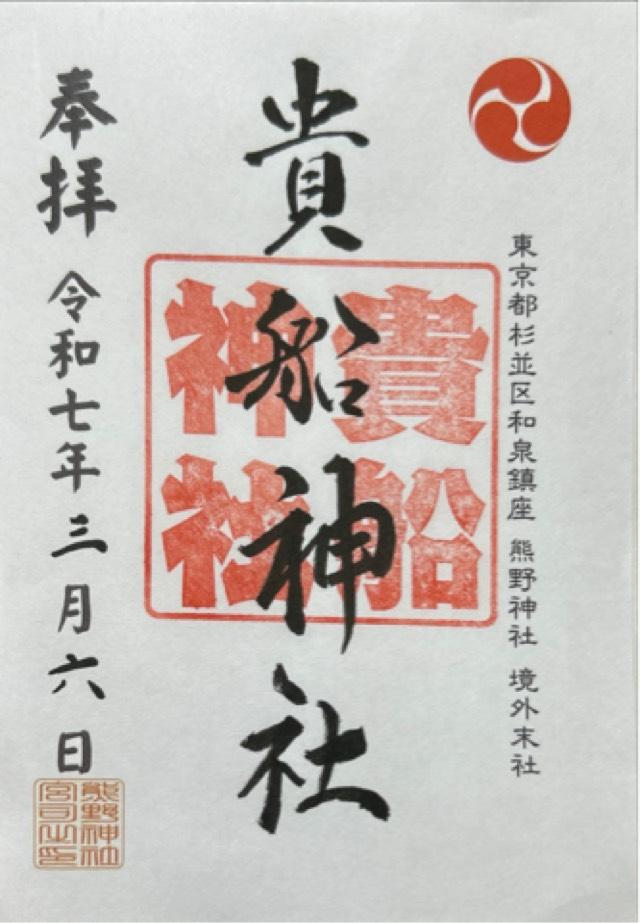 東京都杉並区和泉鎮座 熊野神社 境外末社
貴船神社
貴船
神社
奉拝 令和七年三月六日
熊野神社
宮司之印